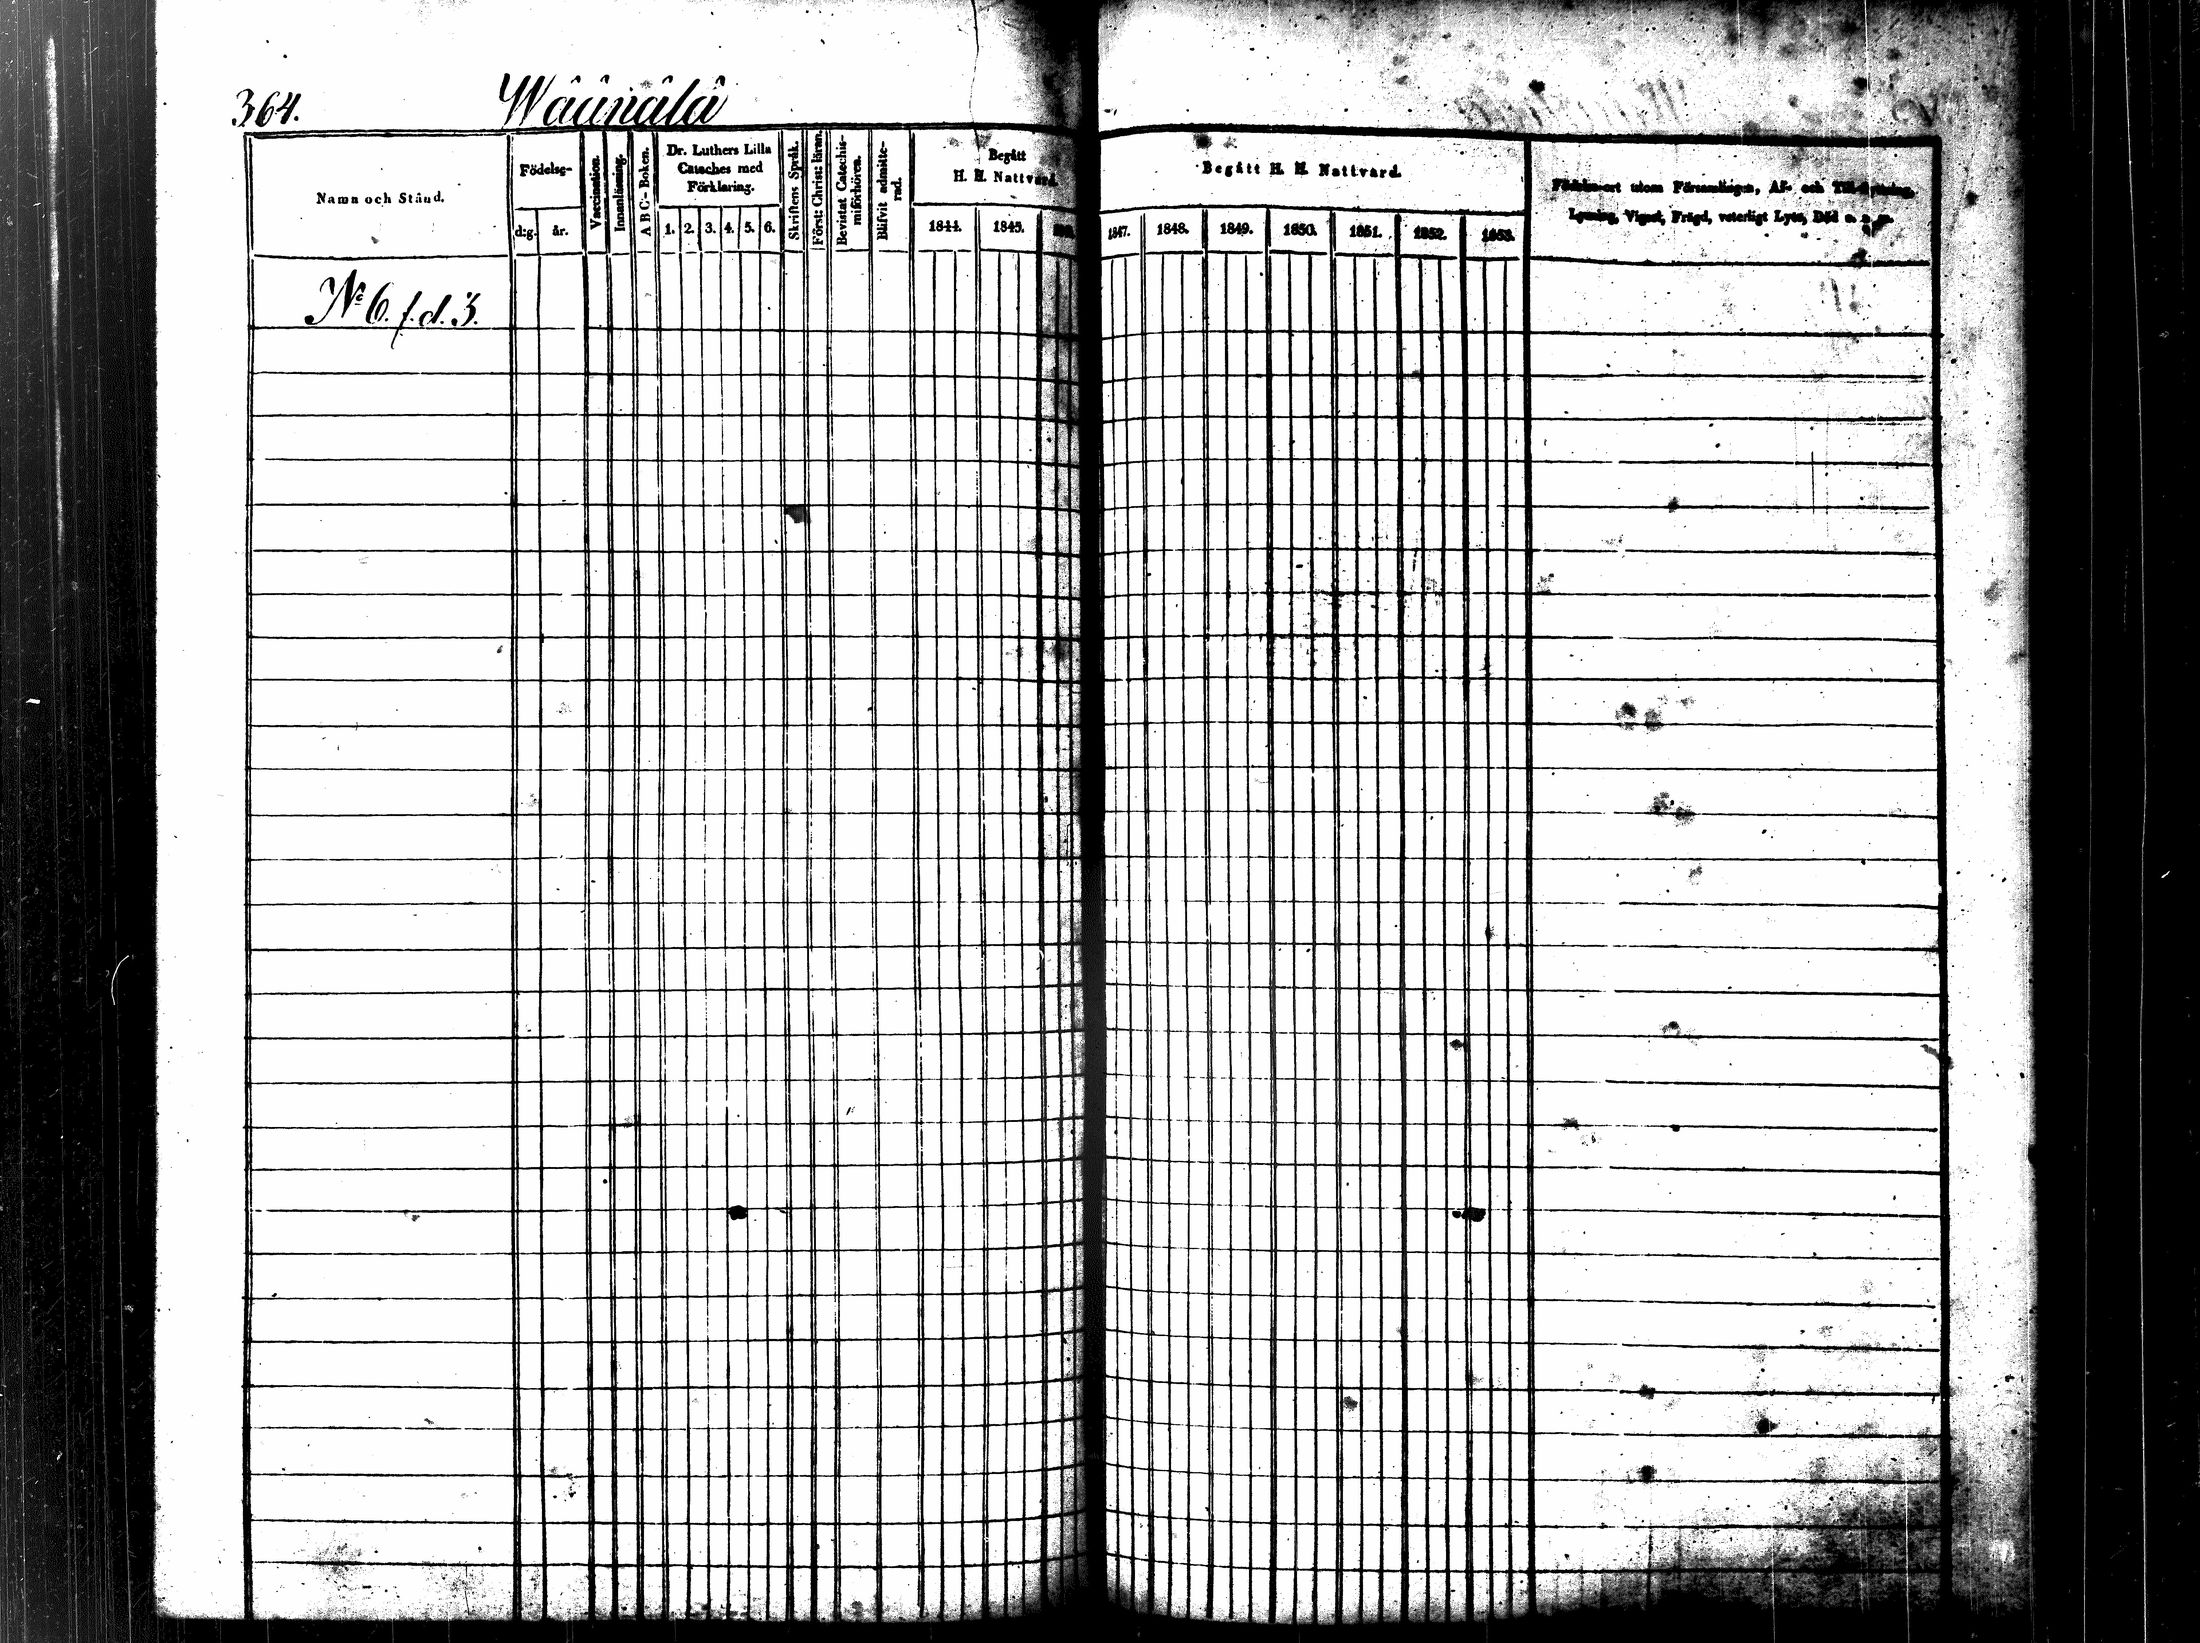 364. Wäänälä
Namn och Stånd.
Födelse-
d:g. år.
Vaccination.
Innanläsning.
A B C-Boken.
Dr. Luthers Lilla
Cateches med
Förklaring.
1. 2. 3. 4. 5. 6.
Skriftens Språk.
Först: Christ: läran.
Bevistat Catechis-
miförhören.
Blifvit admitte-
rad.
Begått
H. H. Nattvard.
1844. 1845.
Begått H. H. Nattvard.
1847. 1848. 1849. 1850. 1851. 1852. 1853.
Födelse-ort utom Församlingen, Af- och Till-flyttning,
Lysning, Vigsel, Frägd, veterligt Lyte, Död o. s. m.
No 6. f. d. 3.